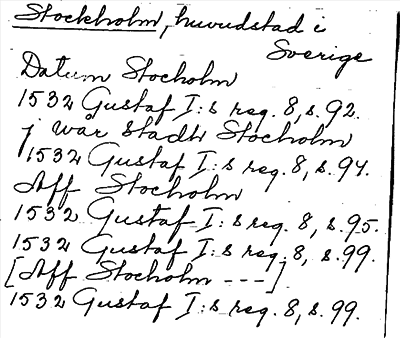 Stockholm, huvudstad i
Sverige
Datum Stocholm
1532 Gustaf I:s reg. 8, s. 92.
j wår stadh Stocholm
1532 Gustaf I:s reg. 8, s. 94.
Aff Stocholm
1532 Gustaf I:s reg. 8, s. 95.
1532 Gustaf I:s reg. 8, s. 99.
[Aff Stocholm ---]
1532 Gustaf I:s reg. 8, s. 99.